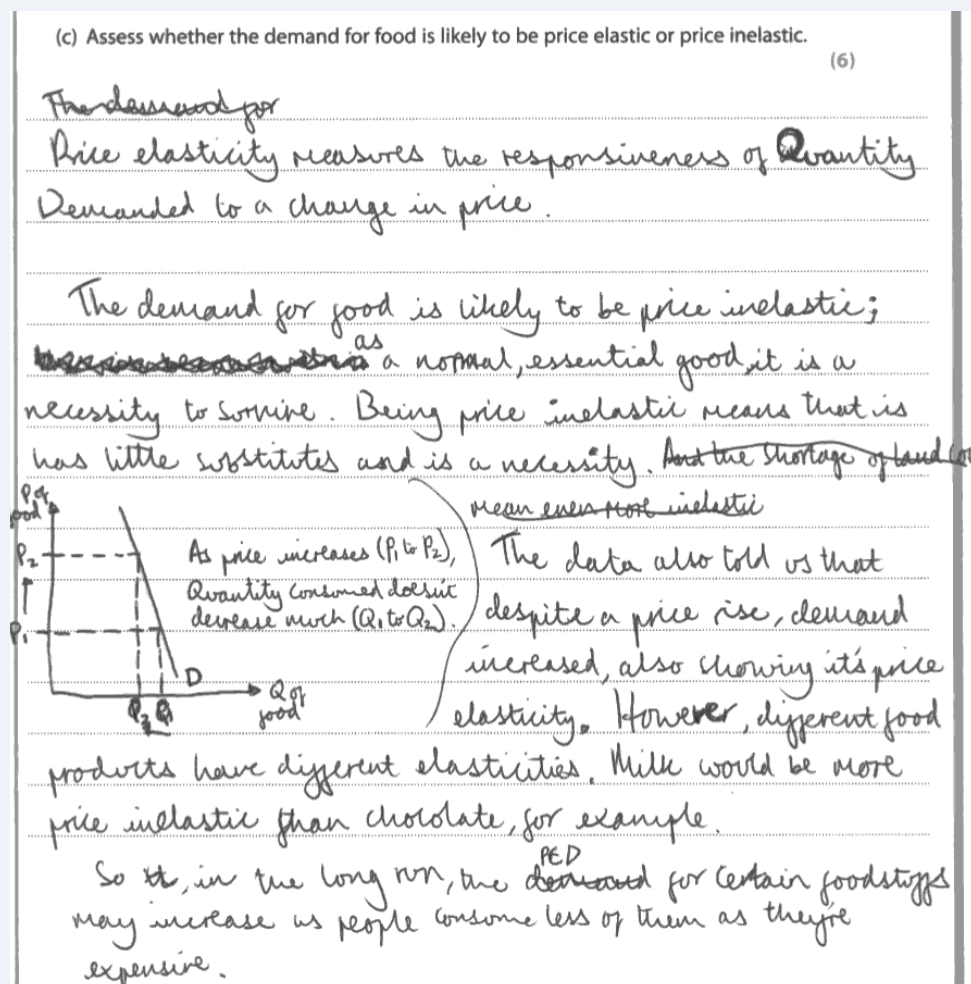 (c) Assess whether the demand for food is likely to be price elastic or price inelastic.
(6)
The demand for
Price elasticity measures the responsiveness of Quantity
Demanded to a change in price.
The demand for food is likely to be price inelastic;
as a normal, essential good, it is a
necessity to survive. Being price inelastic means that is
has little substitutes and is a necessity. And the shortage of land
mean even more inelastic
P of
food
P2
P1
D
Q2 Q1
Q of
food
As price increases (P1 to P2),
Quantity consumed doesn't
decrease much (Q1 to Q2).
The data also told us that
despite a price rise, demand
increased, also showing it's price
elasticity. However, different food
products have different elasticities. Milk would be more
price inelastic than chocolate, for example.
So, in the long run, the demand PED for certain foodstuffs
may increase as people consume less of them as they're
expensive.